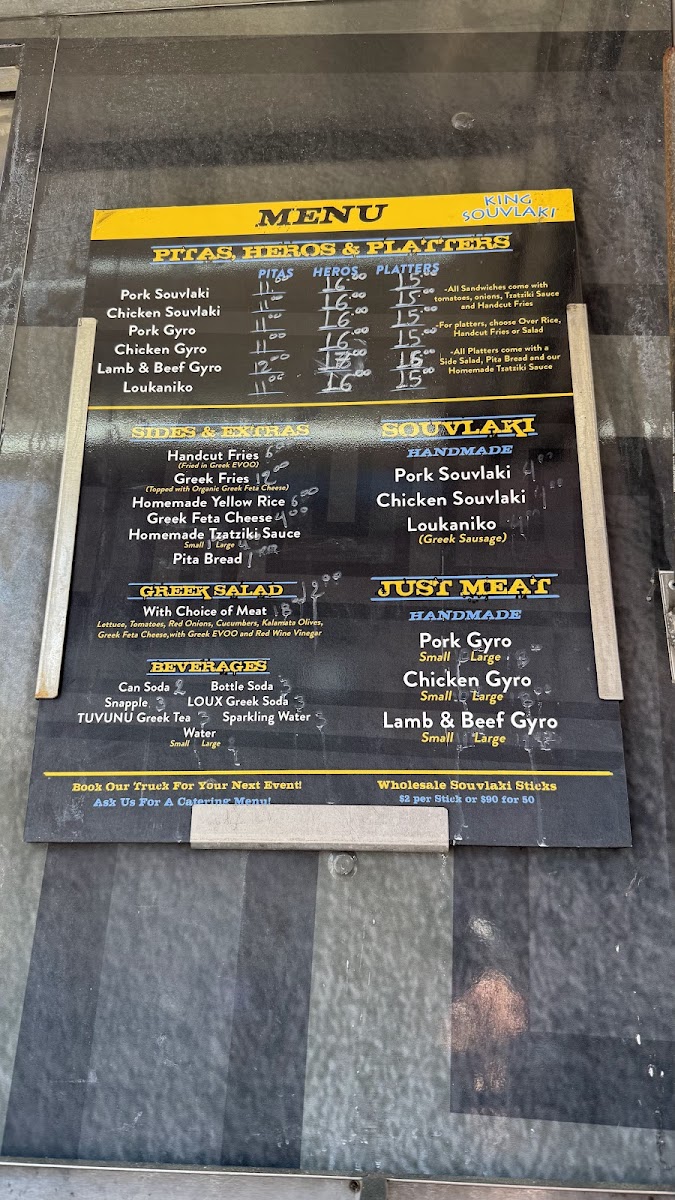 MENU
KING
SOUVLAKI
PITAS, HEROS & PLATTERS
PITAS HEROS PLATTERS
Pork Souvlaki 11.00 16.00 15.00
Chicken Souvlaki 11.00 16.00 15.00
Pork Gyro 11.00 16.00 15.00
Chicken Gyro 11.00 16.00 15.00
Lamb & Beef Gyro 12.00
Loukaniko 11.00 16.00 15.00
-All Sandwiches come with
tomatoes, onions, Tzatziki Sauce
and Handcut Fries
-For platters, choose Over Rice,
Handcut Fries or Salad
-All Platters come with a
Side Salad, Pita Bread and our
Homemade Tzatziki Sauce
SIDES & EXTRAS
Handcut Fries 6.00
(Fried in Greek EVOO)
Greek Fries 12.00
(Topped with Organic Greek Feta Cheese)
Homemade Yellow Rice 6.00
Greek Feta Cheese 4.00
Homemade Tzatziki Sauce
Small Large
Pita Bread
GREEK SALAD 12.00
With Choice of Meat 18
Lettuce, Tomatoes, Red Onions, Cucumbers, Kalamata Olives,
Greek Feta Cheese, with Greek EVOO and Red Wine Vinegar
BEVERAGES
Can Soda 2 Bottle Soda 3
Snapple 3 LOUX Greek Soda 3
TUVUNU Greek Tea 3 Sparkling Water 3
Water
Small Large
SOUVLAKI
HANDMADE
Pork Souvlaki 4.00
Chicken Souvlaki
Loukaniko
(Greek Sausage)
JUST MEAT
HANDMADE
Pork Gyro
Small Large
Chicken Gyro
Small Large
Lamb & Beef Gyro
Small Large
Book Our Truck For Your Next Event!
Ask Us For A Catering Menu!
Wholesale Souvlaki Sticks
$2 per Stick or $90 for 50